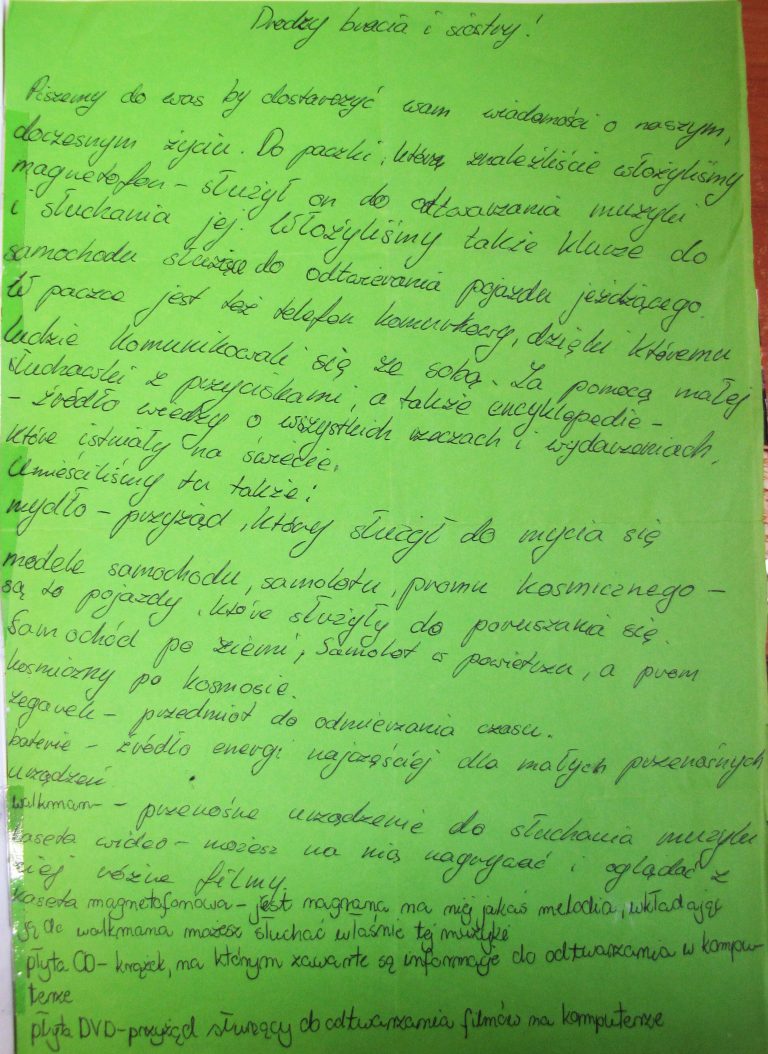 Drodzy bracia i siostry!
Piszemy do was by dostarczyć wam wiadomości o naszym,
doczesnym życiu. Do paczki, którą znaleźliście włożyliśmy
magnetofon - służył on do odtwarzania muzyki
i słuchania jej. Włożyliśmy także klucze do
samochodu służące do odtwierania pojazdu jeżdżącego.
W paczce jest też telefon komurkowy, dzięki któremu
ludzie komunikowali się ze sobą. Za pomocą małej
słuchawki z przyciskami, a także encyklopedie -
- źródło wiedzy o wszystkich rzeczach i wydarzeniach,
które istniały na świecie.
Umieściliśmy tu także:
mydło - przyrząd, który służył do mycia się
modele samochodu, samolotu, promu kosmicznego -
są to pojazdy, które służyły do poruszania się.
Samochód po ziemi, Samolot w powietrzu, a prom
kosmiczny po kosmosie.
zegarek - przedmiot do odmierzania czasu.
baterie - źródło energi najczęściej dla małych przenośnych
urządzeń.
walkman - przenośne urządzenie do słuchania muzyki
kaseta wideo - możesz na nią nagrywać i oglądać z
niej różne filmy
kaseta magnetofonowa - jest nagrana na niej jakaś melodia, wkładając
ją do walkmana możesz słuchać właśnie tej muzyki
płyta CD - krążek, na którym zawarte są informacje do odtwarzania w kompu-
terze
płyta DVD - przyrząd służący do odtwarzania filmów na komputerze